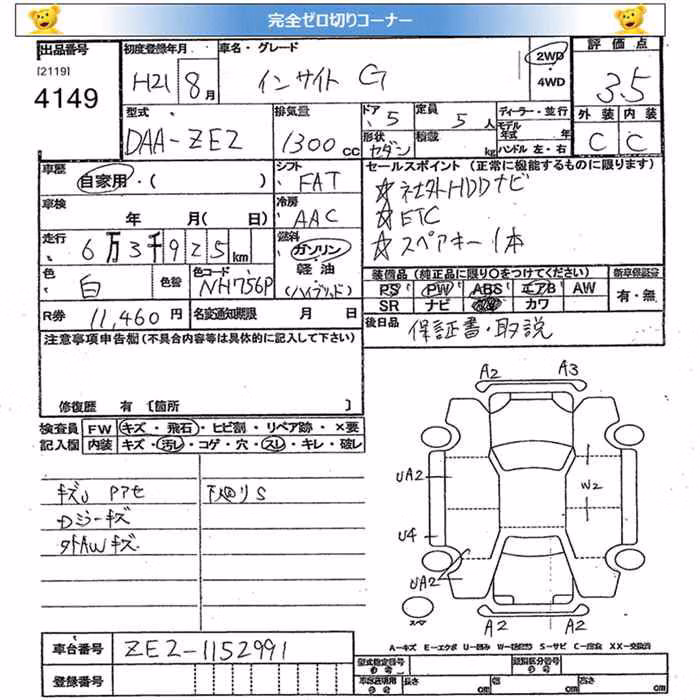 完全ゼロ切りコーナー
出品番号
[2119]
4149
初度登録年月
H21 8月
車名・グレード
インサイト G
2WD
・
4WD
評価点
3.5
外装 内装
C C
型式
DAA-ZE2
排気量
1300cc
ドア 5
形状 セダン
定員 5人
積載 kg
ディーラー・並行
モデル年式 年
ハンドル 左・右
車歴
自家用・( )
シフト
FAT
車検
年 月( 日)
冷房
AAC
走行
6万3千925km
燃料
ガソリン
軽油
(ハイブリッド)
色
白
色替
色コード
NH756P
R券 11,460円
名変通知期限 月 日
セールスポイント (正常に機能するものに限ります)
☆社外HDDナビ
☆ETC
☆スペアキー1本
装備品(純正品に限り○をつけてください)
新車保証書
PS PW ABS エアB AW
SR ナビ カワ
有・無
後日品
保証書・取説
注意事項申告欄(不具合内容等は具体的に記入して下さい)
修復歴 有 〔箇所 〕
検査員記入欄
FW キズ・飛石・ヒビ割・リペア跡・×要
内装 キズ・汚レ・コゲ・穴・スレ・キレ・破レ
下廻りS
Dミラーキズ
外AWキズ
A2 A3
UA2
W2
U4
UA2
スペア
A2 A2
A=キズ E=エクボ U=凹み S=サビ XX=交換済
車台番号 ZE2-1152991
登録番号
型式指定番号
類別区分番号
長さ cm 幅 cm 高さ cm